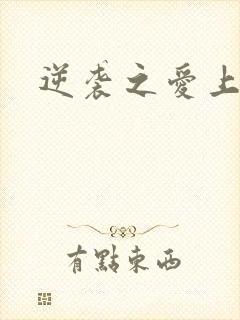 逆袭之愛上
有點東西